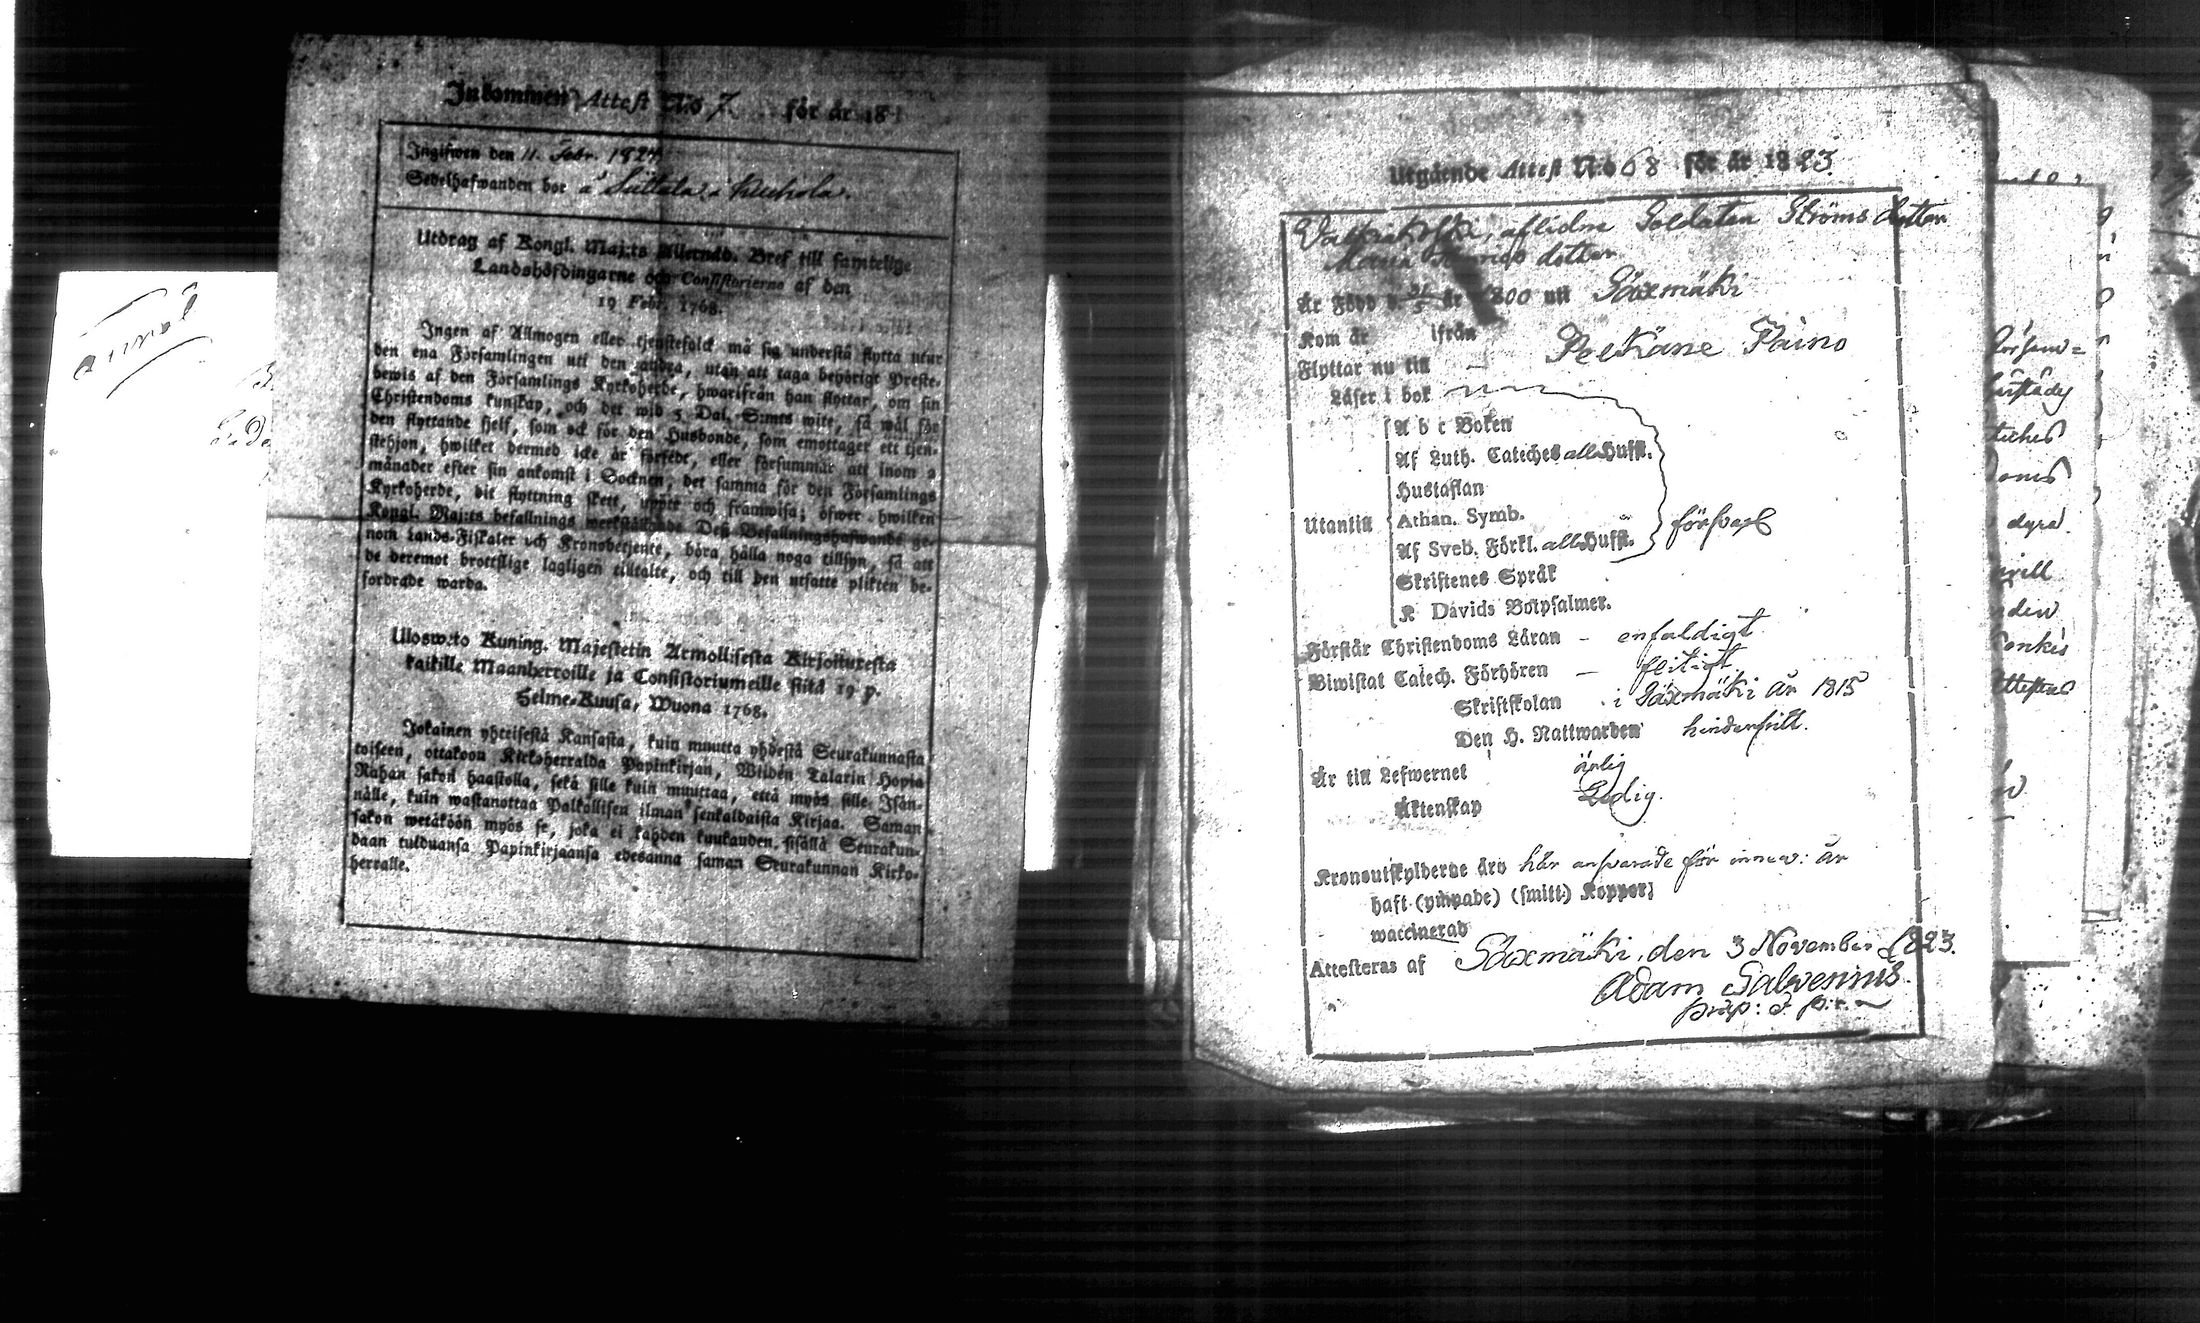 Inkommen Attest N:o 7. för år 18
Ingifwen den 11. Febr. 1824
Sedelhafwanden bor å Suttala i Kuuhola.
Utdrag af Kongl. Maj:ts Allernåd. Bref till samtelige
Landshöfdingarne och Consistorierne af den
19 Febr. 1768.
Ingen af Allmogen eller tjenstefolck må sig understå flytta utur
den ena Församlingen uti den andra, utan att taga behörigt Preste-
bewis af den Församlings Kyrkoherde, hwarifrån han flyttar, om sin
Christendoms kunskap, och det wid 5 Dal. S:mts wite, så wäl för
den flyttande sielf, som ock för den Husbonde, som emottager ett tjen-
stehjon, hwilket dermed icke är försedt, eller försummar att inom 2
månader efter sin ankomst i Socknen, det samma för den Församlings
Kyrkoherde, dit flyttning skett, uppte och framwisa; öfwer hwilken
Kongl. Maj:ts befallnings werkställande Deß Befallningshafwande ge-
nom Lands-Fiskaler och Kronobetjente, böra hålla noga tillsyn, så att
de deremot brottslige lagligen tilltalte, och till den utsatte plikten be-
fordrade warda.
Ulosw:to Kuning. Majestetin Armollisesta Kirjoituxesta
kaikille Maanherroille ja Consistoriumeille siitä 19 p.
Helme-Kuusa, Wuona 1768.
Jokainen yhteisestä Kansasta, kuin muutta yhdestä Seurakunnasta
toiseen, ottakoon Kirkoherralda Papinkirjan, Wiiden Talarin Hopia
Rahan sakon haastolla, sekä sille kuin muuttaa, että myös sille Isän-
nälle, kuin wastanottaa Palkollisen ilman senkaldaista Kirjaa. Saman
sakon wetäköön myös se, joka ei kahden kuukauden sisällä Seurakun-
daan tulduansa Papinkirjaansa edesanna saman Seurakunnan Kirko-
herralle.
Utgående Attest N:o 68 för år 1823.
Valkiakoski, aflidne Soldaten Ströms dotter
Maria dotter
Är Född d. år 1800 uti Sääxmäki
Kom år ifrån
Flyttar nu till – Pelkäne Paino
Läser i bok
Utantill
A b c Boken
Af Luth. Cateches alla Hufst.
Hustaflan
Athan. Symb.
Af Sveb. Förkl. alla Hufst. försvarl
Skriftenes Språk
K. Davids Botpsalmer.
Förstår Christendoms Läran – enfaldigt
Biwistat Catech. Förhören – flitigt
Skriftskolan i Sääxmäki år 1815
Den H. Nattwarden hinderfritt.
Är till Lefwernet ärlig
Äktenskap Ledig.
Kronoutskylderne äro här ansvarade för innev: år
haft (ympade) (smitt.) Koppor;
waccinerad
Attesteras af Sääxmäki, den 3 November 1823.
Adam Salvenius.